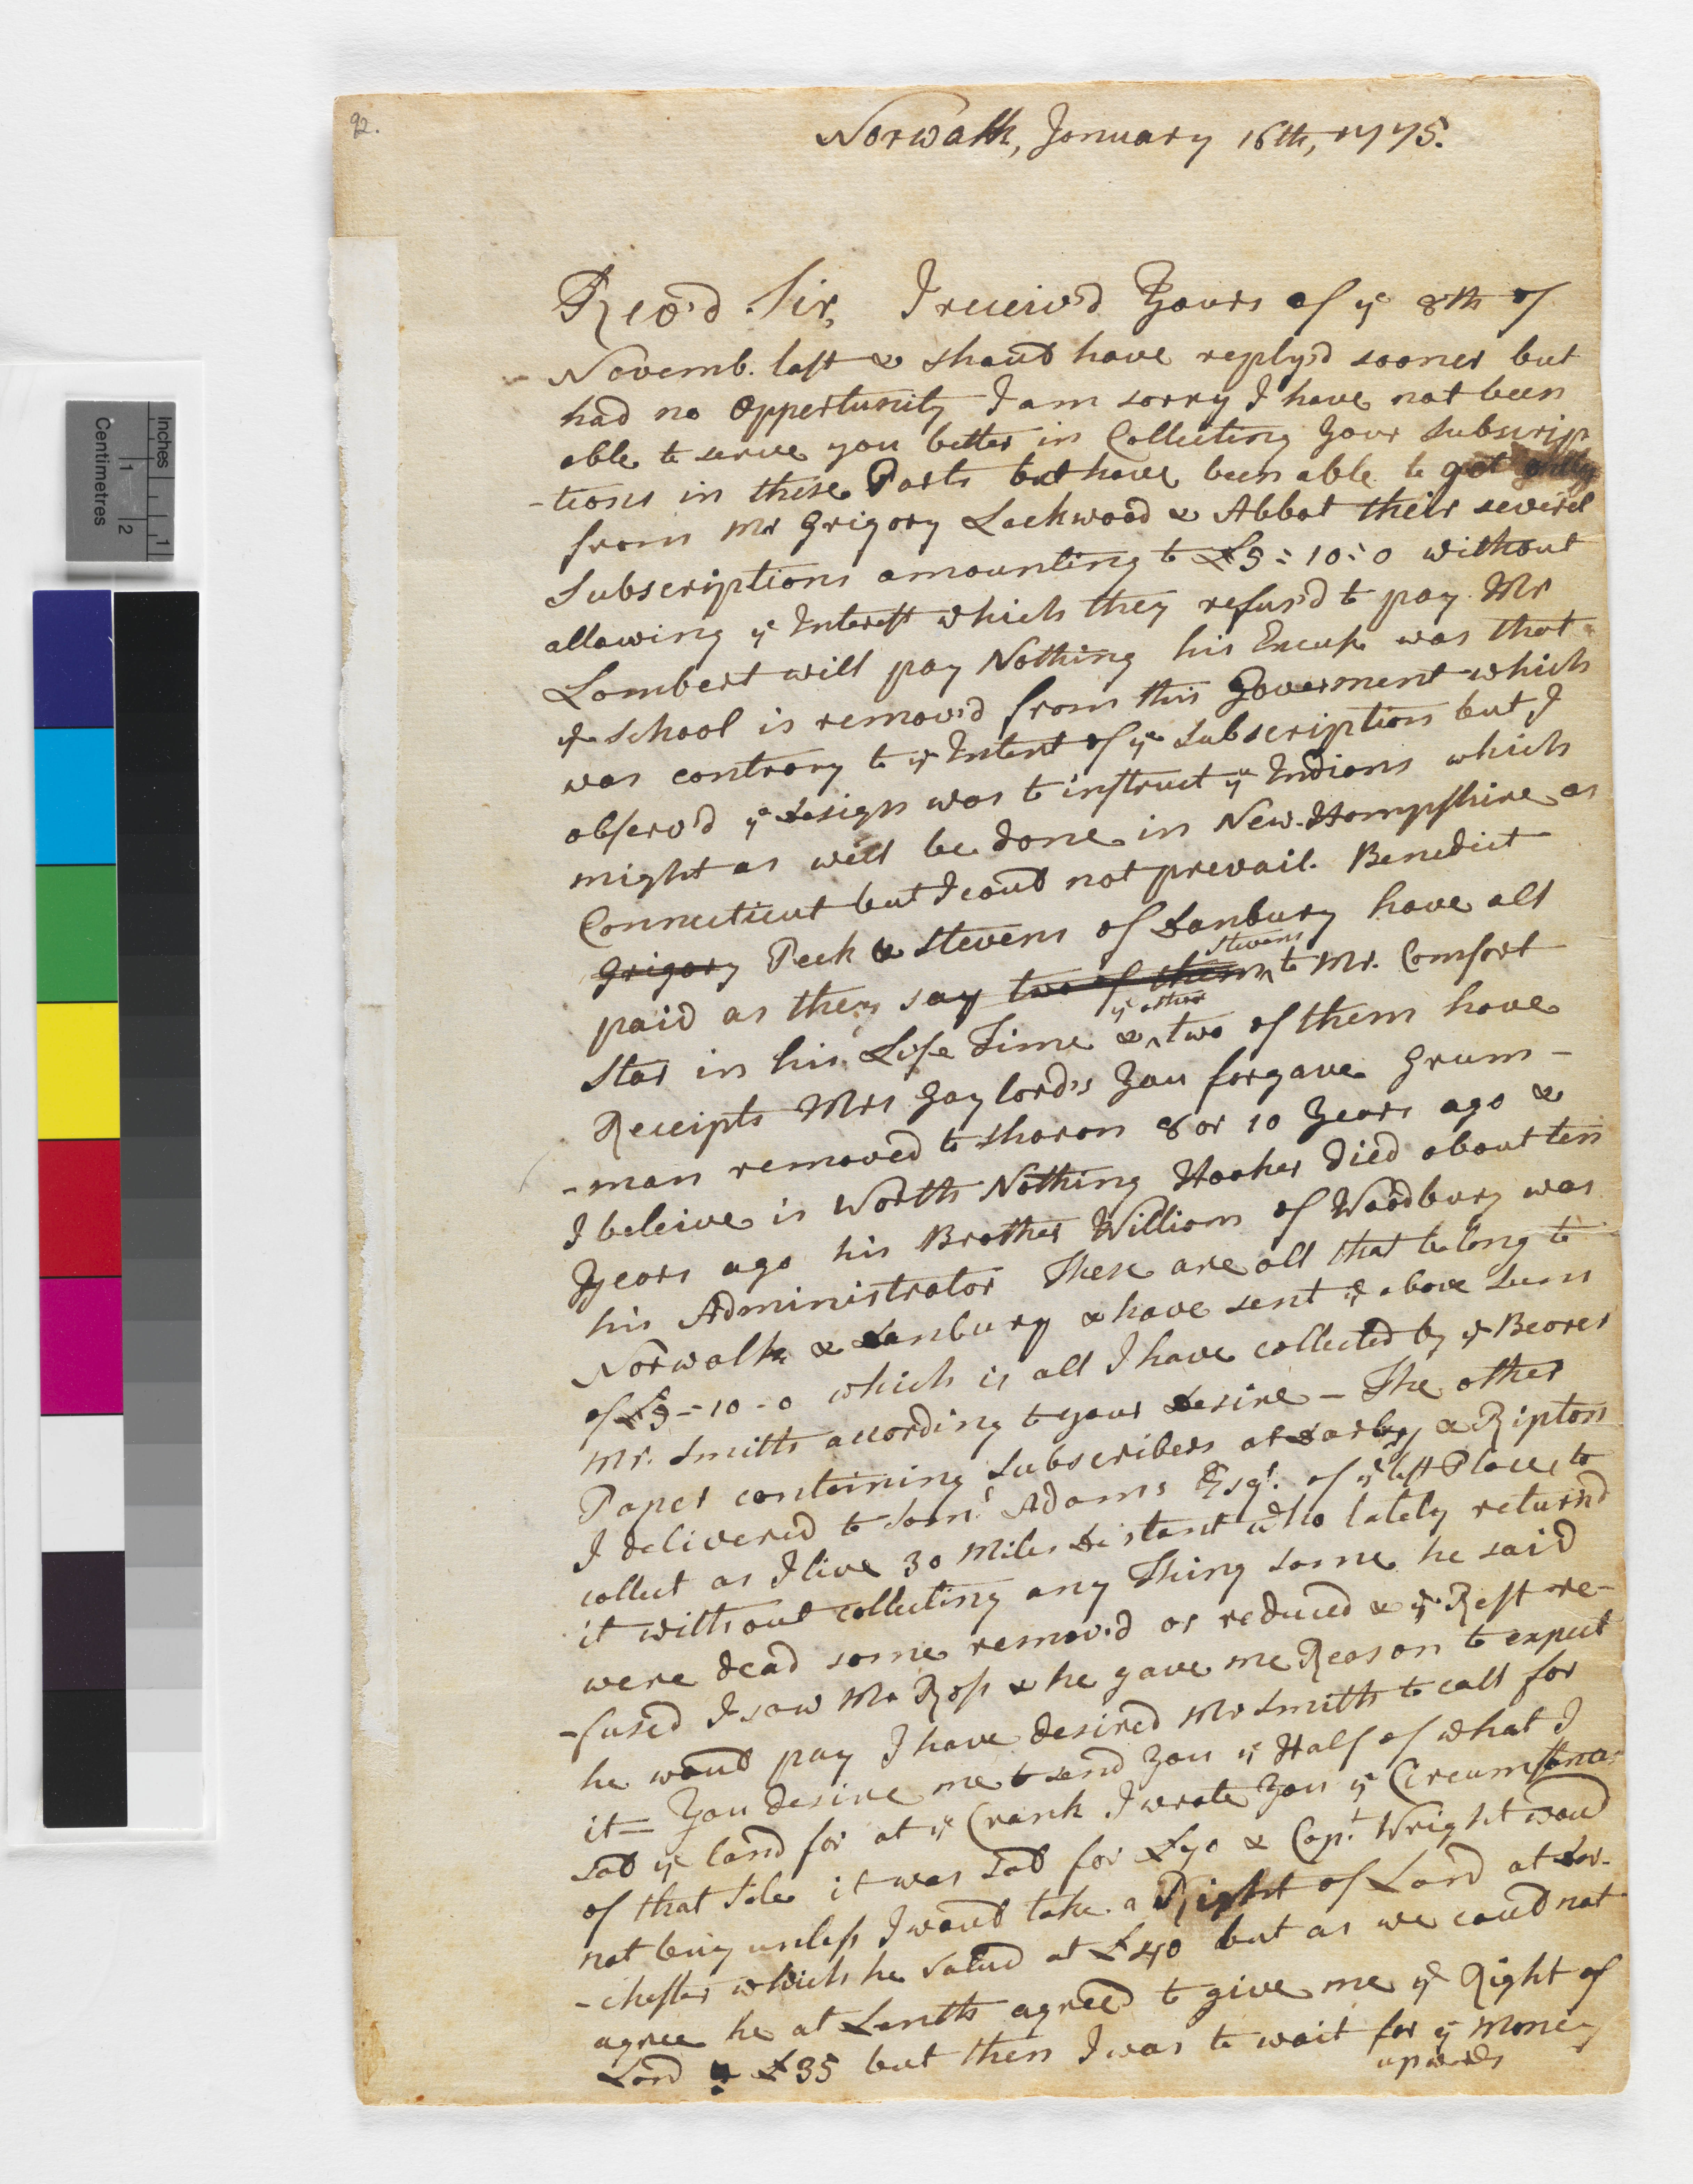 92.
Norwalk, January 16th, 1775.
Rev'd. Sir, I receiv'd Yours of ye 8th of
Novemb. last & shoud have reply'd sooner but
had no Oppertunity I am sorry I have not been
able to serve you better in Collecting Your Subscrip
-tions in these Parts but have been able to get
from Mr Grigory Lockwood & Abbot their severel
Subscriptions amounting to £9=10=0 without
allowing ye Interest which they refus'd to pay Mr
Lambert will pay Nothing his Excuse was that
ye School is remov'd from this Goverment which
was contrary to ye Intent of ye Subscription but I
observ'd ye Design was to instruct ye Indians which
might as well be done in New-Hampshire as
Connecticut but I coud not prevail. Benedict
Grigory Peck & Stevens of Danbury have all
paid as they say two of them Stevens to Mr. Comfort
Star in his Life Time & ye other two of them have
Receipts Mrs Gaylord's You forgave Grum-
-man removed to Sharon 8 or 10 Years ago &
I beleive is Worth Nothing Hooker Died about ten
Years ago his Brother William of Woodbury was
his Administrator These are all that belong to
Norwalk & Danbury & have sent ye above Sum
of £9-10-0 which is all I have collected by ye Bearer
Mr. Smith according to your Desire - The other
Paper containing Subscribers at Darby & Ripton
I delivered to Saml. Adams Esqr. of ye last Place to
collect as I live 30 Miles Distant who lately returnd
it without collecting any Thing some he said
were dead some remov'd or reduced & ye Rest re-
-fused I saw Mr Ross & he gave me Reason to expect
he woud pay I have desired Mr Smith to call for
it= You desire me to send You ye Half of what I
sold ye land for at ye Crank I wrote You ye Circumstances
of that Sale it was sold for £70 & Capt. Wright woud
not buy unless I woud take a Right of Land at Dor-
-chester which he valud at £40 but as we coud not
agree he at Lenth agreed to give me ye Right of
Land & £35 but then I was to wait for ye Money
upwards